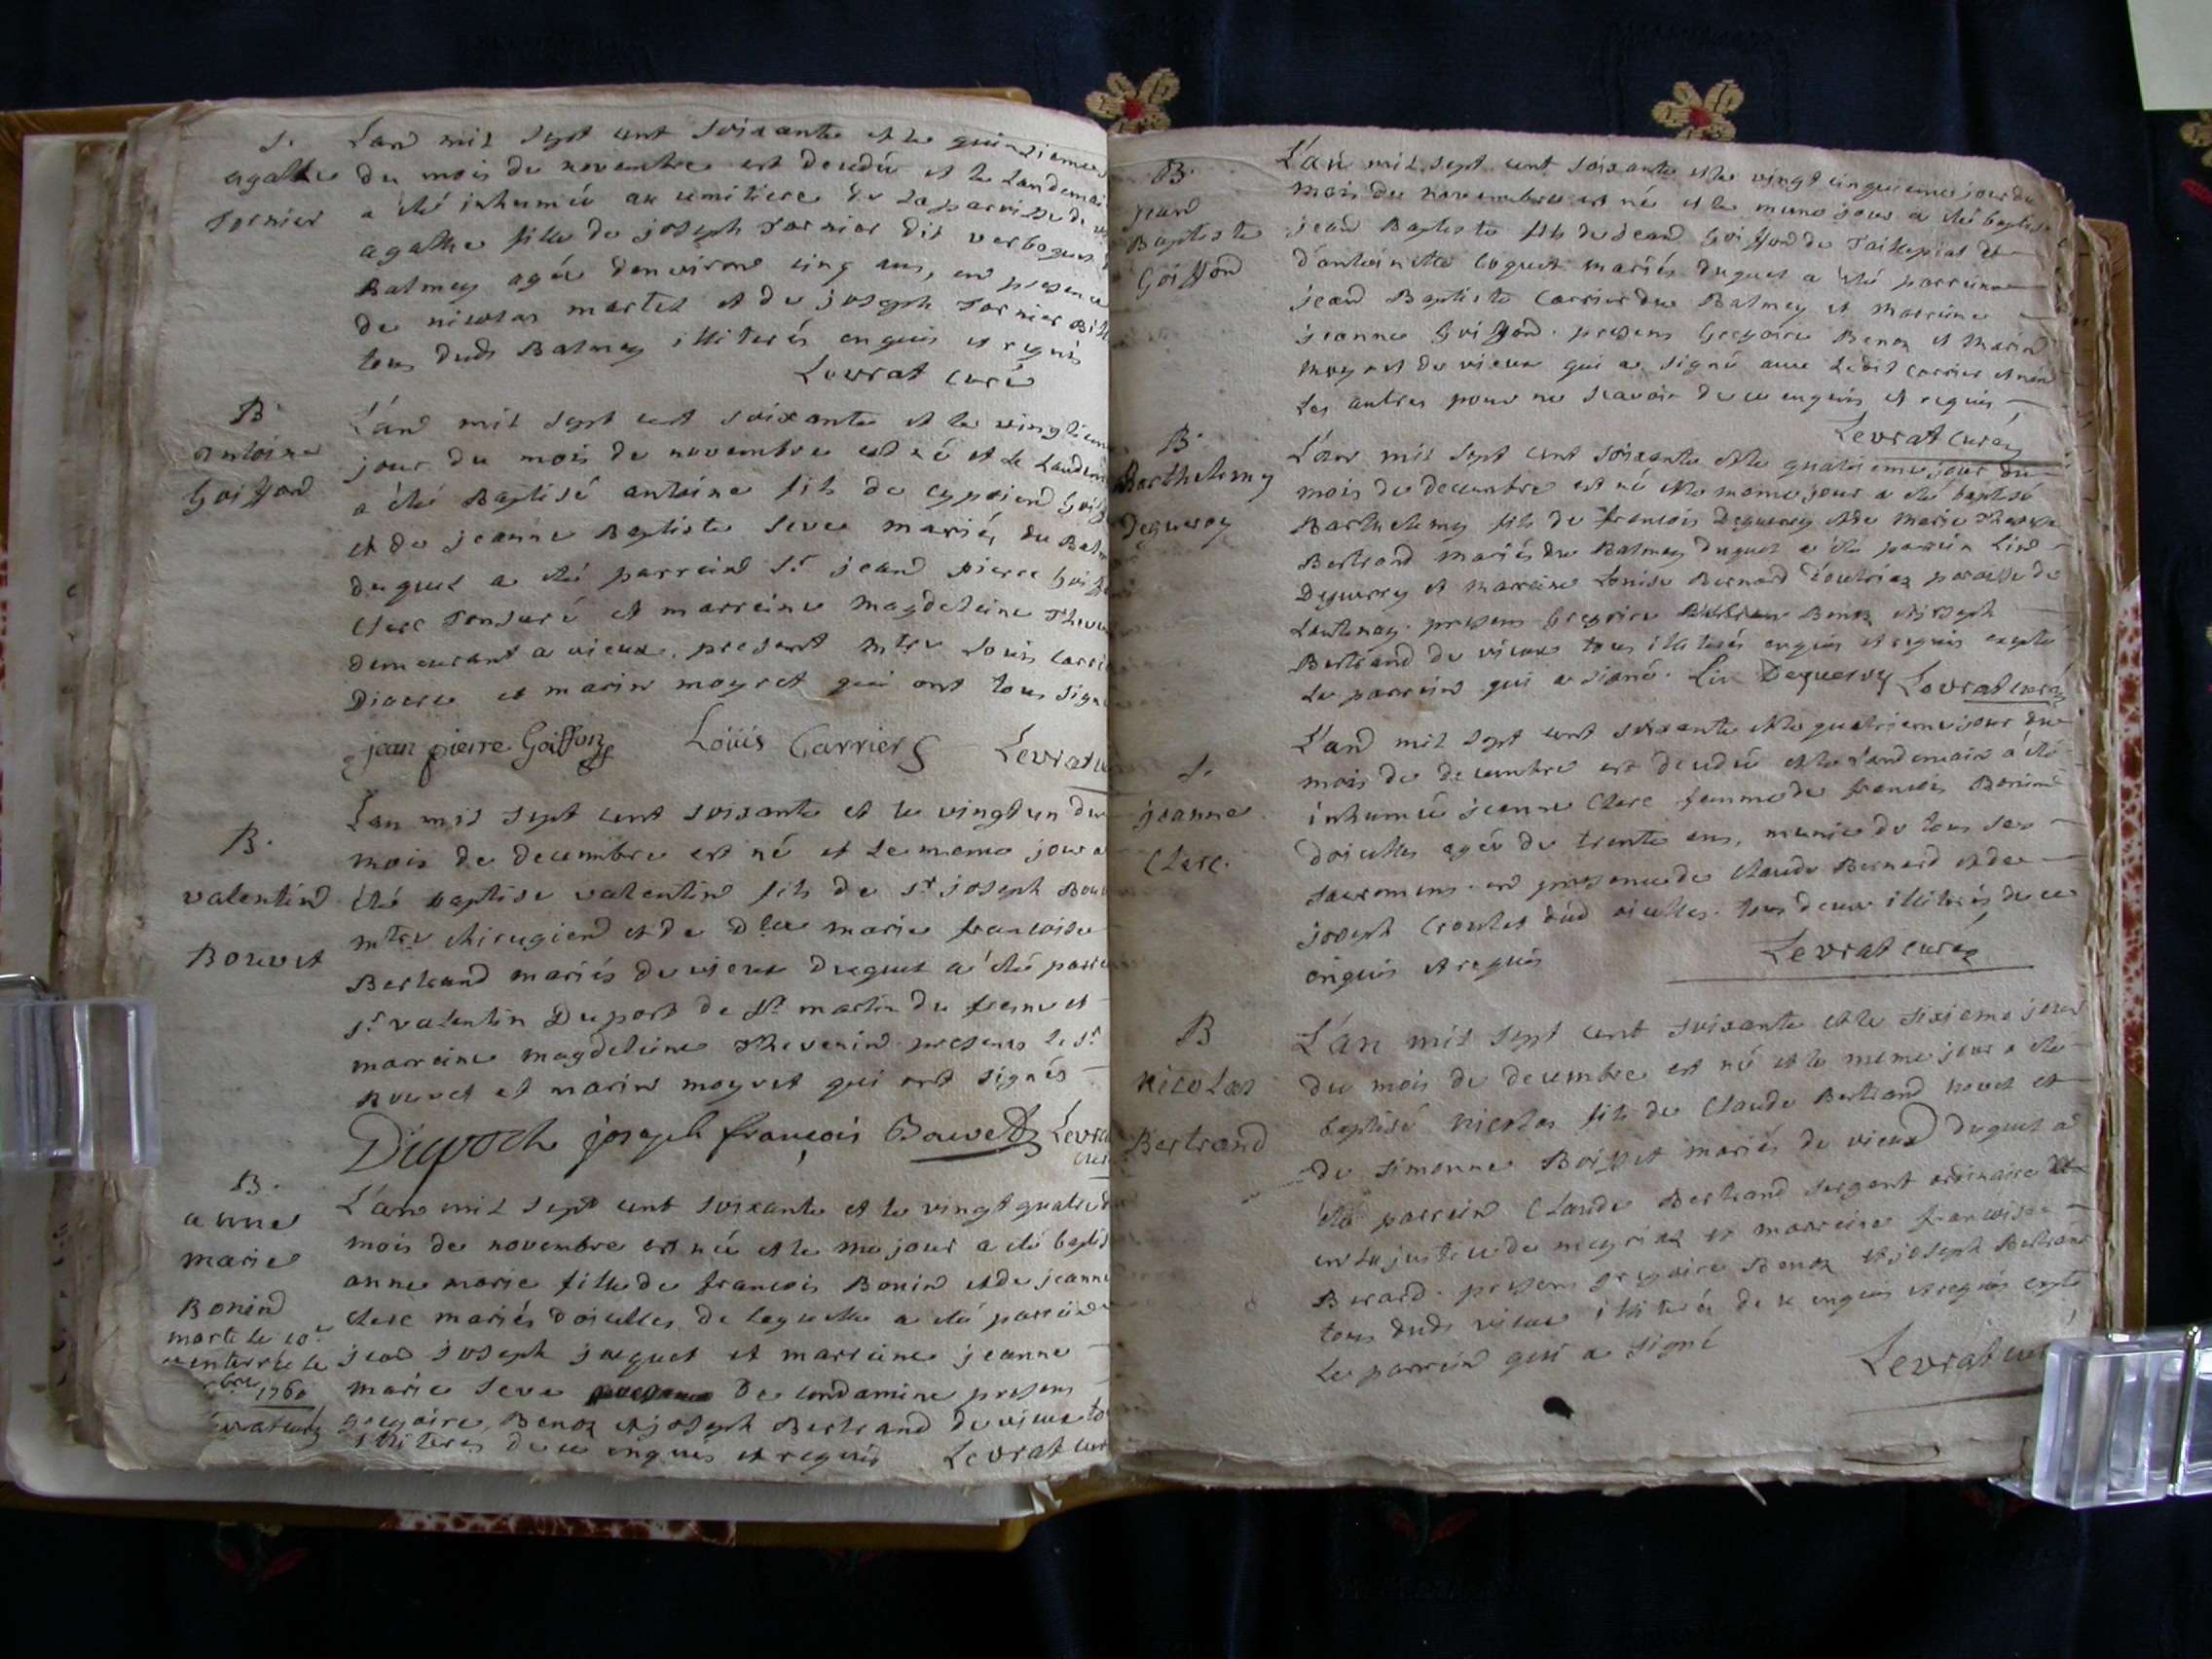 S.
agathe
Tornier
L'an mil sept cent soixante et le quinzieme
du mois de novembre est decedée et le landemain
a été inhumée au cemitiere de la paroisse de
agathe fille de joseph Tornier dit
Balmey agée denviron cinq ans, en presence
de nicolas martel et de joseph Tornier
tous dud. Balmey illiterés enquis et requis
Levrat curé
B.
antoine
Goiffond
L'an mil sept cent soixante et le vingtieme
jour du mois de novembre est né et le landemain
a été Baptisé antoine fils de cyprien
et de jeanne Baptiste Seve mariés du
duquel a été parrein Sr. jean pierre
Clerc Tonsuré et marreine magdeleine
demeurant a vieux, present mtre Louis
Diacre et marin moyret qui ont tous signé
jean pierre Goiffon Loüis Carrier Levrat
B.
valentin
Bouvet
L'an mil sept cent soixante et le vingt un du
mois de decembre est né et le meme jour a
été baptisé valentin fils de Sr joseph
mtre chirugien et de Dlle marie francoise
Bertrand mariés de vieux duquel a été
Sr valentin Duport de St martin du fresne et
marreine magdeleine Thevenin presens le Sr
Bouvet et marin moyret qui ont signés
joseph françois Bouvet Levrat
B.
anne
marie
Bonin
morte le 10e
enterrée le
1760
L'an mil sept cent soixante et le vingt quatre
mois de novembre est née et le me jour a été
anne marie fille de francois Bonin et de jeanne
clerc mariés doicelles de laquelle a été parrein
jean joseph jacquet et marreine jeanne
marie Seve de condamine presens
gregoire Benoz et joseph Bertrand de vieux
illiteres de ce enquis et requis Levrat
B.
jean
Baptiste
Goiffond
L'an mil sept cent soixante et le vingt cinquieme jour du
mois de novembre est né et le meme jour a été baptisé
jean Baptiste fils de jean Goiffon de et
d'antoinette coquet mariés duquel a été parreine
jean Baptiste carrier du Balmey et marreine
jeanne Goiffond. presens Gregoire Benoz et marin
moyret de vieux qui a signé avec ledit carrier et non
les autres pour ne scavoir de ce enquis et requis
Levrat curé
B.
Barthelemy
Deguerry
L'an mil sept cent soixante et le quatrieme jour du
mois de decembre est né et le meme jour a été baptisé
Barthelemy fils de francois Deguerry et de marie Therese
Bertrand mariés du Balmey duquel a été parrein
Deguerry et marreine Louise Bernard paroisse de
Lantenay. presens Gregoire Benoz et joseph
Bertrand de vieux tous illiterés enquis et requis excepté
le parrein qui a signé. Deguerry Levrat curé
S.
jeanne
Clerc.
L'an mil sept cent soixante et le quatrieme jour du
mois de decembre est decedée et le landemain a été
inhumée jeanne Clerc femme de francois Bonin
doicelles agée de trente ans, munie de tous ses
sacremens. en presence de claude Bernard et de
joseph dud oicelles. tous deux illiterés de ce
enquis et requis
Levrat curé
B
nicolas
Bertrand
L'an mil sept cent soixante et le sixieme jour
du mois de decembre est né et le meme jour a été
baptisé nicolas fils de Claude Bertrand et
de simonne mariés de vieux duquel a
été parrein Claude Bertrand sergent ordinaire
en la justice de et marreine francoise
Berard. presens gregoire Benoz et joseph Bertrand
tous dud vieux illiterés de ce enquis et requis excepté
le parrein qui a signé
Levrat curé